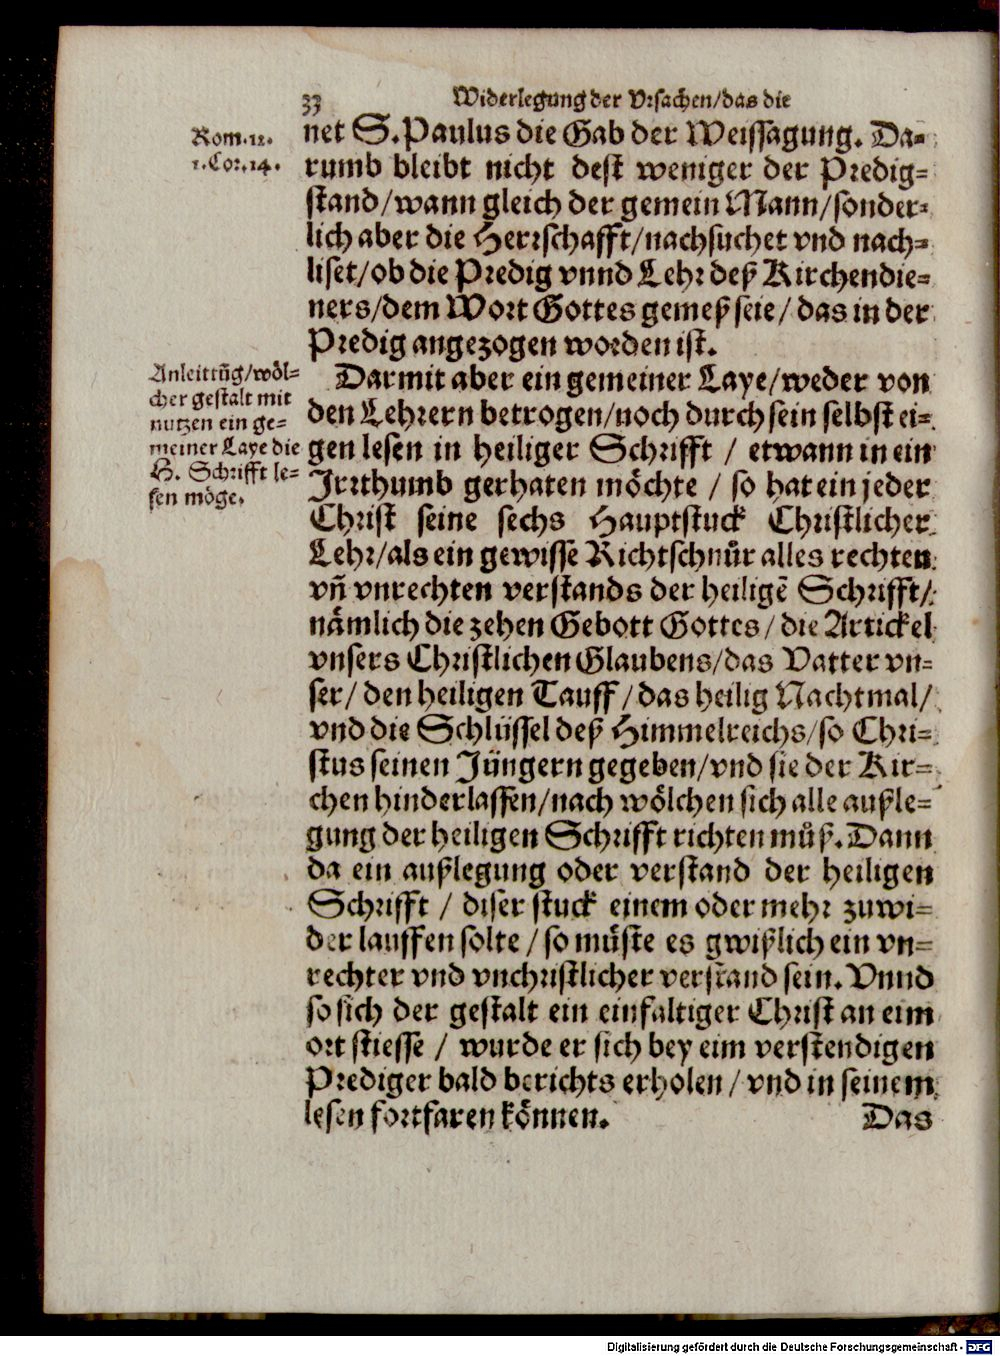 33 Widerlegung der Vrsachen/das die
Rom.12.
1.Cor.14.
net S.Paulus die Gab der Weissagung. Da-
rumb bleibt nicht dest weniger der Predig-
stand/wann gleich der gemein Mann/sonder-
lich aber die Herrschafft/nachsuchet vnd nach-
liset/ob die Predig vnnd Lehr deß Kirchendie-
ners/dem Wort Gottes gemeß seie/ das in der
Predig angezogen worden ist.
Anleittũg/wöl-
cher gestalt mit
nutzen ein ge-
meiner Laye die
H. Schrifft le-
sen möge.
Darmit aber ein gemeiner Laye/weder von
den Lehrern betrogen/noch durch sein selbst ei-
gen lesen in heiliger Schrifft / etwann in ein
Irrthumb gerhaten möchte / so hat ein jeder
Christ seine sechs Hauptstuck Christlicher
Lehr/als ein gewisse Richtschnůr alles rechten
vñ vnrechten verstands der heiligẽ Schrifft/
nämlich die zehen Gebott Gottes/ die Artickel
vnsers Christlichen Glaubens/das Vatter vn-
ser/ den heiligen Tauff/das heilig Nachtmal/
vnd die Schlüssel deß Himmelreichs/so Chri-
stus seinen Jüngern gegeben/vnd sie der Kir-
chen hinderlassen/nach wölchen sich alle außle-
gung der heiligen Schrifft richten můß. Dann
da ein außlegung oder verstand der heiligen
Schrifft / diser stuck einem oder mehr zuwi-
der lauffen solte / so müste es gwißlich ein vn-
rechter vnd vnchristlicher verstand sein. Vnnd
so sich der gestalt ein einfaltiger Christ an eim
ort stiesse / wurde er sich bey eim verstendigen
Prediger bald berichts erholen / vnd in seinem
lesen fortfaren können.
Das
Digitalisierung gefördert durch die Deutsche Forschungsgemeinschaft - DFG